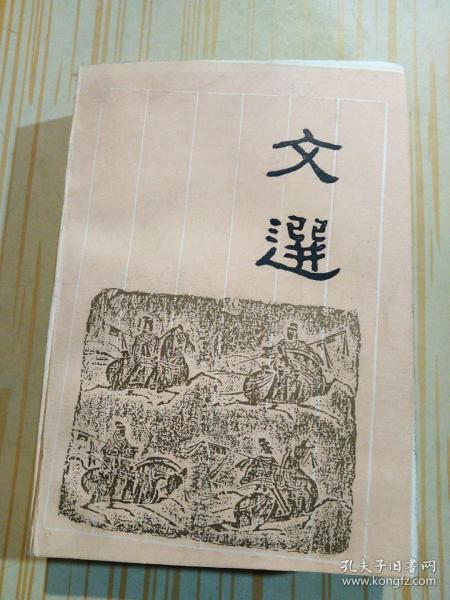 文
選
孔夫子旧书网
www.kongfz.com